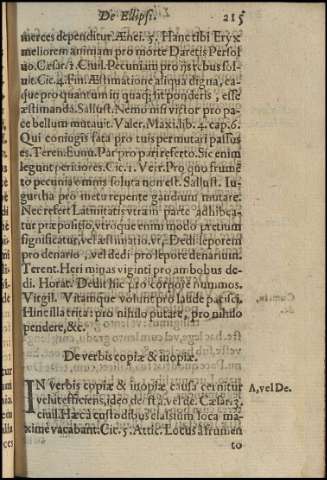 De Ellipsi. 215
merces dependitur. Æneï. 5. Hanc tibi Eryx
meliorem animam pro morte Daretis Persol
uo. Cæsar. 1. Ciuil. Pecuniam pro iis rebus sol-
uit. Cic. 4. Fin. Æstimatione aliqua digna, ea-
que pro quantum in quadrit ponderis, esse
æstimanda. Sallust. Nemo nisi victor pro pa-
ce bellum mutauit. Valer. Maxi. lib. 4. cap. 6.
Qui coniugis fata pro tuis permutari passus
es. Teren. Eunu. Par pro pari referto. Sic enim
legunt peritiores. Cic. 1. Verr. Pro quo frumē
to pecunia omnis soluta non est. Sallust. Iu-
gurtha pro metu repente gaudium mutare.
Nec refert Latinitatis vtram parte adhibea-
tur præpositio, vtroque enim modo pretium
significatur, vel æstimatio. vt, Dedi leporem
pro denario, vel dedi pro lepore denarium.
Terent. Heri minas viginti pro ambobus de-
di. Horat. Dedit hic pro corpore nummos.
Virgil. Vitamque volunt pro laude pacisci.
Hinc illa trita: pro nihilo putare, pro nihilo
pendere, &c.
De verbis copiæ & inopiæ.
IN verbis copiæ & inopiæ causa cernitur
velut efficiens, ideo deest à, vel de. Cæsar. 3.
ciuil. Hæc à custodibus classium loca ma-
xime vacabant. Cic. 5. Attic. Locus à frumen
to
A, vel De.